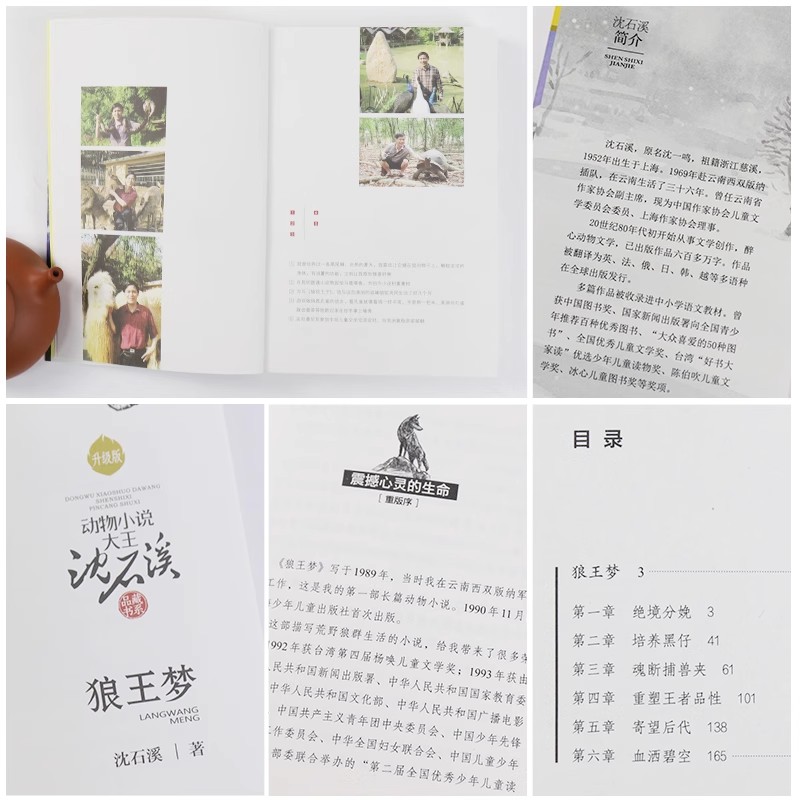 沈石溪
简介
SHEN SHIXI
JIANJIE
沈石溪，原名沈一鸣，祖籍浙江慈溪，
1952年出生于上海。1969年赴云南西双版纳
插队，在云南生活了三十六年。曾任云南省
作家协会副主席，现为中国作家协会儿童文
学委员会委员、上海作家协会理事。
20世纪80年代初开始从事文学创作，醉
心动物文学，已出版作品六百多万字。作品
被翻译为英、法、俄、日、韩、越等多语种
在全球出版发行。
多篇作品被收录进中小学语文教材。曾
获中国图书奖、国家新闻出版署向全国青少
年推荐百种优秀图书、“大众喜爱的50种图
书”、全国优秀儿童文学奖、台湾“好书大
家读”优选少年儿童读物奖、陈伯吹儿童文
学奖、冰心儿童图书奖等奖项。
升级版
DONGWU XIAOSHUO DAWANG
SHENSHIXI
PINCANG SHUXI
动物小说
大王
沈石溪
品藏
书系
狼王梦
LANGWANG
MENG
沈石溪｜著
震撼心灵的生命
［重版序］
《狼王梦》写于1989年，当时我在云南西双版纳军
工作，这是我的第一部长篇动物小说。1990年11月
少年儿童出版社首次出版。
这部描写荒野狼群生活的小说，给我带来了很多
1992年获台湾第四届杨唤儿童文学奖；1993年获由
人民共和国新闻出版署、中华人民共和国国家教育委
中华人民共和国文化部、中华人民共和国广播电影
中国共产主义青年团中央委员会、中国少年先锋
工作委员会、中华全国妇女联合会、中国儿童少年
部委联合举办的“第二届全国优秀少年儿童读
目录
狼王梦 3
第一章 绝境分娩 3
第二章 培养黑仔 41
第三章 魂断捕兽夹 61
第四章 重塑王者品性 101
第五章 寄望后代 138
第六章 血洒碧空 165